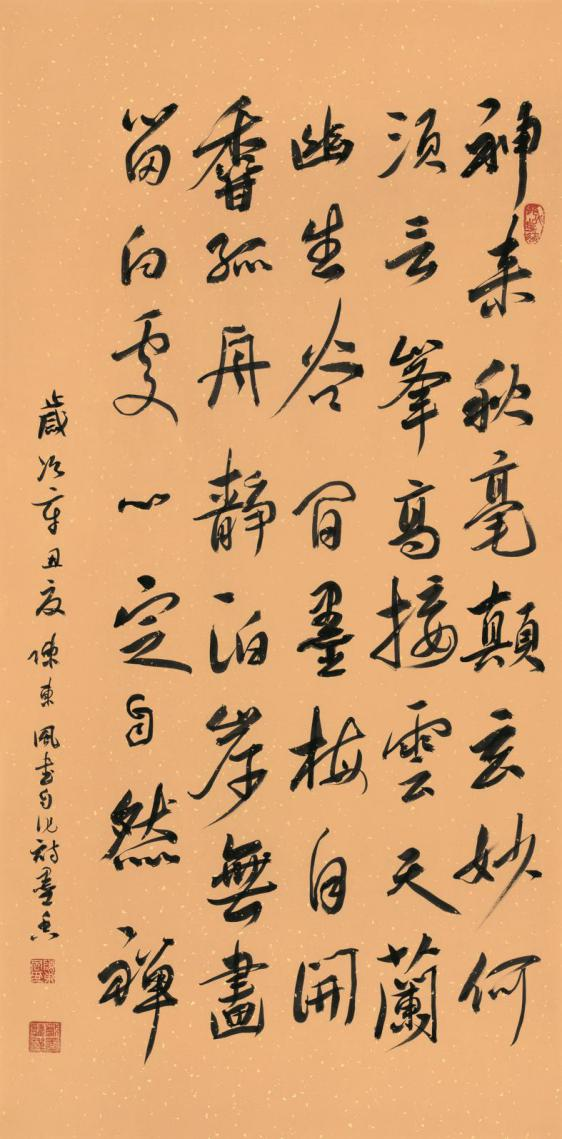 神来秋毫顛玄妙何
須言峯高接雲天蘭
幽生谷間墨梅自開
香孤舟靜泊岸無畫
留白處心定自然禪
歲次辛丑夏陳東風書自作詩墨香